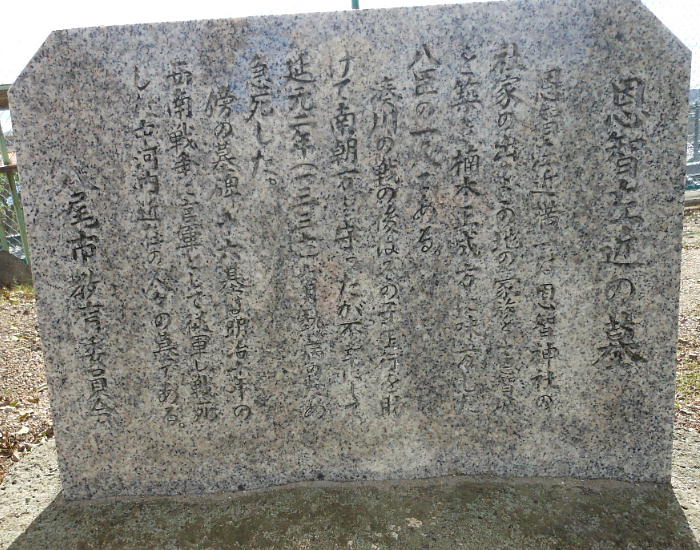 恩智左近の墓
恩智左近満一は恩智神社の
社家の出でこの地の豪族として恩智城
を築き楠木正成方に味方した
八臣の一人である。
湊川の戦の後はその子正行を助
けて南朝方を守ったが不幸にして
延元二年(一三三七)
急死した。
傍の墓碑十六基は明治十年の
西南戦争に官軍として従軍し戦死
した古河内近在の人々の墓である。
八尾市教育委員会